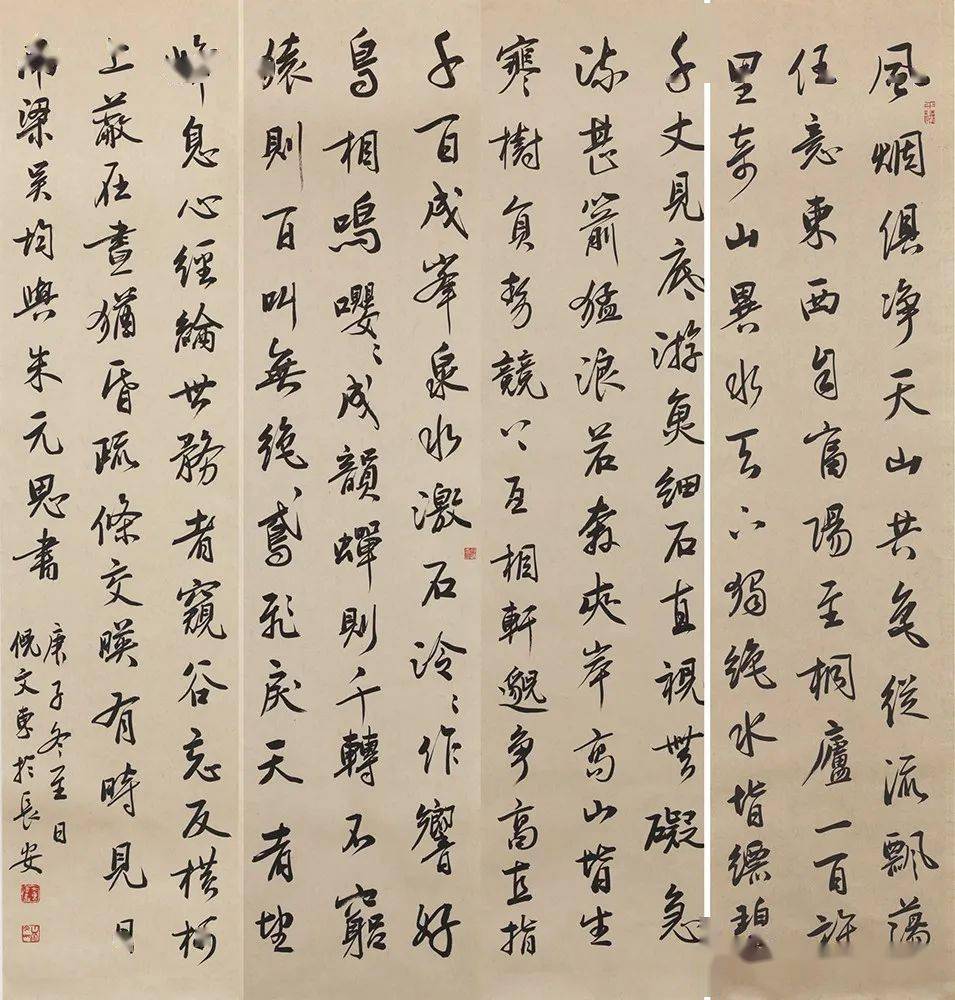 風烟俱净天山共色從流飄蕩
任意東西自富陽至桐廬一百許
里奇山異水天下獨絶水皆縹碧
千丈見底游魚細石直視無礙急
湍甚箭猛浪若奔夾岸高山皆生
寒樹負勢競上互相軒邈争高直指
千百成峯泉水激石泠〻作響好
鳥相鳴嚶〻成韻蟬則千轉不窮
猿則百叫無絶鳶飛戾天者望
峰息心經綸世務者窺谷忘反横柯
上蔽在晝猶昏疏條交暎有時見日
南梁吴均與朱元思書
庚子冬至日
倪文東於長安